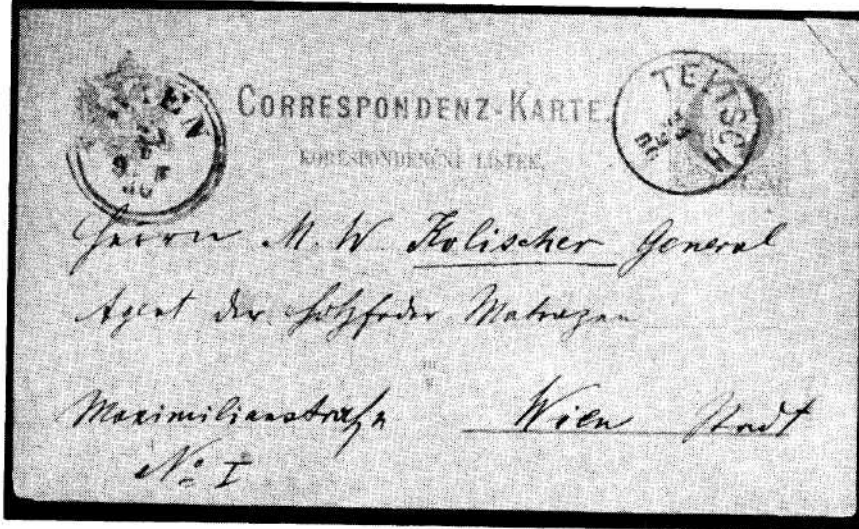 WIEN
CORRESPONDENZ-KARTE.
TELTSCH
KORESPONDENČNÍ LÍSTEK.
Herrn M. W. Kolischer General
Agent der Holzfeder Matrazen
Maximilianstraße Wien Stadt
No I